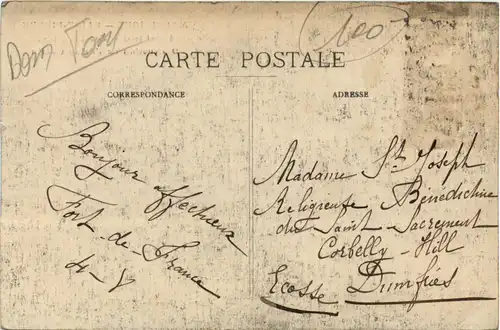 Dom Tom
100
CARTE POSTALE
CORRESPONDANCE
ADRESSE
Bonjour affectueux
Fort-de-France
4-8
Madame St Joseph
Religieuse Bénédictine
du Saint-Sacrement
Corbelly-Hill
Dumfries
Ecosse